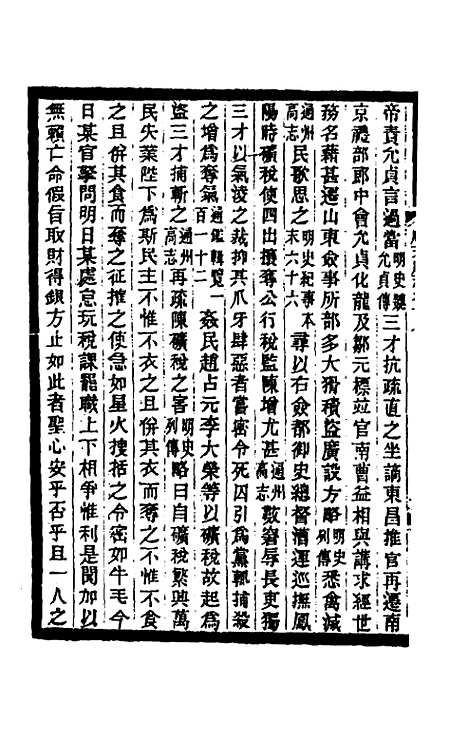 帝責允貞言過當明史魏允貞傳三才抗疏直之坐謫東昌推官再遷南
京禮部郎中會允貞化龍及鄒元標竝官南曹益相與講求經世
務名藉甚遷山東僉事所部多大猾積盜廣設方略明史列傳悉禽滅
通州高志民歌思之明史紀事本末六十六尋以右僉都御史總督漕運巡撫鳳
陽時礦稅使四出攘奪公行稅監陳增尤甚通州高志數窘辱長吏獨
三才以氣凌之裁抑其爪牙肆惡者嘗密令死囚引爲黨輒捕殺
之增爲奪氣通鑑輯覽一百一十二姦民趙占元李大榮等以礦稅故起爲
盜三才捕斬之通州高志再疏陳礦稅之害明史列傳略曰自礦稅繁興萬
民失業陛下爲斯民主不惟不衣之且併其衣而奪之不惟不食
之且併其食而奪之征搉之使急如星火搜括之令密如牛毛今
日某官拏問明日某處怠玩稅課罷職上下相爭惟利是聞加以
無賴亡命假旨取財得銀方止如此者聖心安乎否乎且一人之